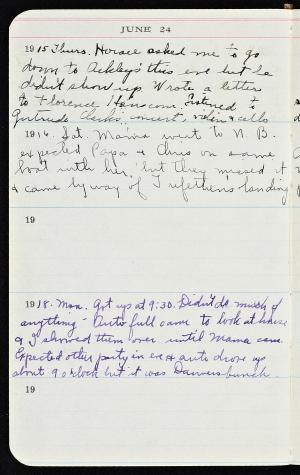 JUNE 24
1915 Thurs. Horace asked me to go
down to Ackley's this eve but he
didn't show up Wrote a letter
to Florence Hanscom. Listened to
Gertrude Clark's concert, violin & cello
1916. Sat. Mama went to N. B.
expected Papa & Chris on same
boat with her but they missed it
& came by way of Trefethen's landing
19
1918. Mon. Got up at 9:30. Didn't do much of
anything - Auto full came to look at house
& I showed them over until Mama came.
Expected other party in eve & auto drove up
about 9 o'clock but it was Danvers bunch.
19